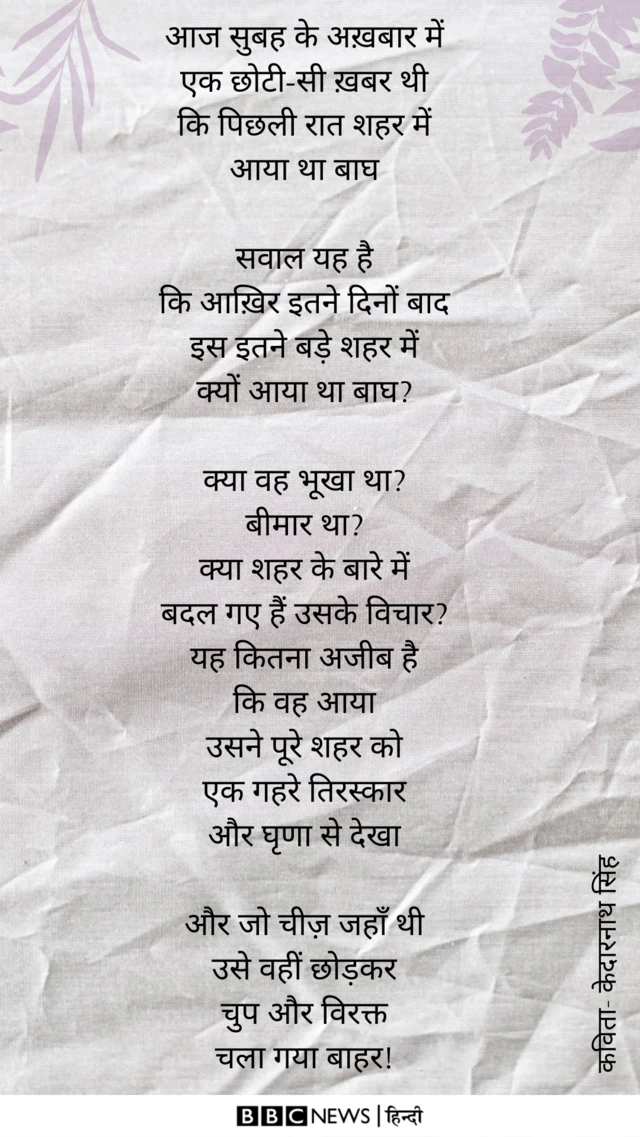 आज सुबह के अख़बार में
एक छोटी-सी ख़बर थी
कि पिछली रात शहर में
आया था बाघ
सवाल यह है
कि आख़िर इतने दिनों बाद
इस इतने बड़े शहर में
क्यों आया था बाघ?
क्या वह भूखा था?
बीमार था?
क्या शहर के बारे में
बदल गए हैं उसके विचार?
यह कितना अजीब है
कि वह आया
उसने पूरे शहर को
एक गहरे तिरस्कार
और घृणा से देखा
और जो चीज़ जहाँ थी
उसे वहीं छोड़कर
चुप और विरक्त
चला गया बाहर!
कविता- केदारनाथ सिंह
BBC NEWS | हिन्दी